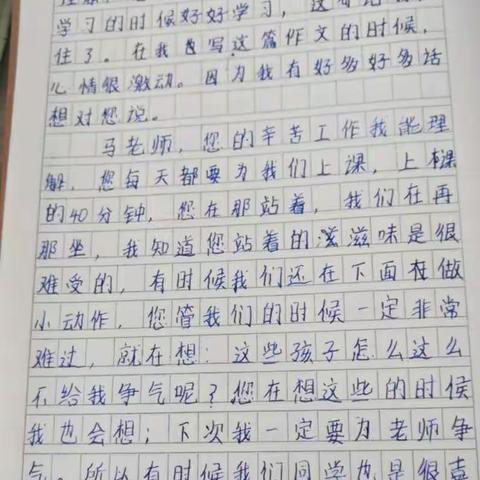 学习的时候好好学习，这
住了。在我写这篇作文的时候，
心情很激动。因为我有好多好多话
想对您说。
马老师，您的辛苦工作我能理
解，您每天都要为我们上课，上课
的40分钟，您在那站着，我们在再
那坐，我知道您站着的滋滋味是很
难受的，有时候我们还在下面在做
小动作，您管我们的时候一定非常
难过，就在想：这些孩子怎么这么
不给我争气呢？您在想这些的时候
我也会想；下次我一定要为老师争
气。所以有时候我们同学也是很喜